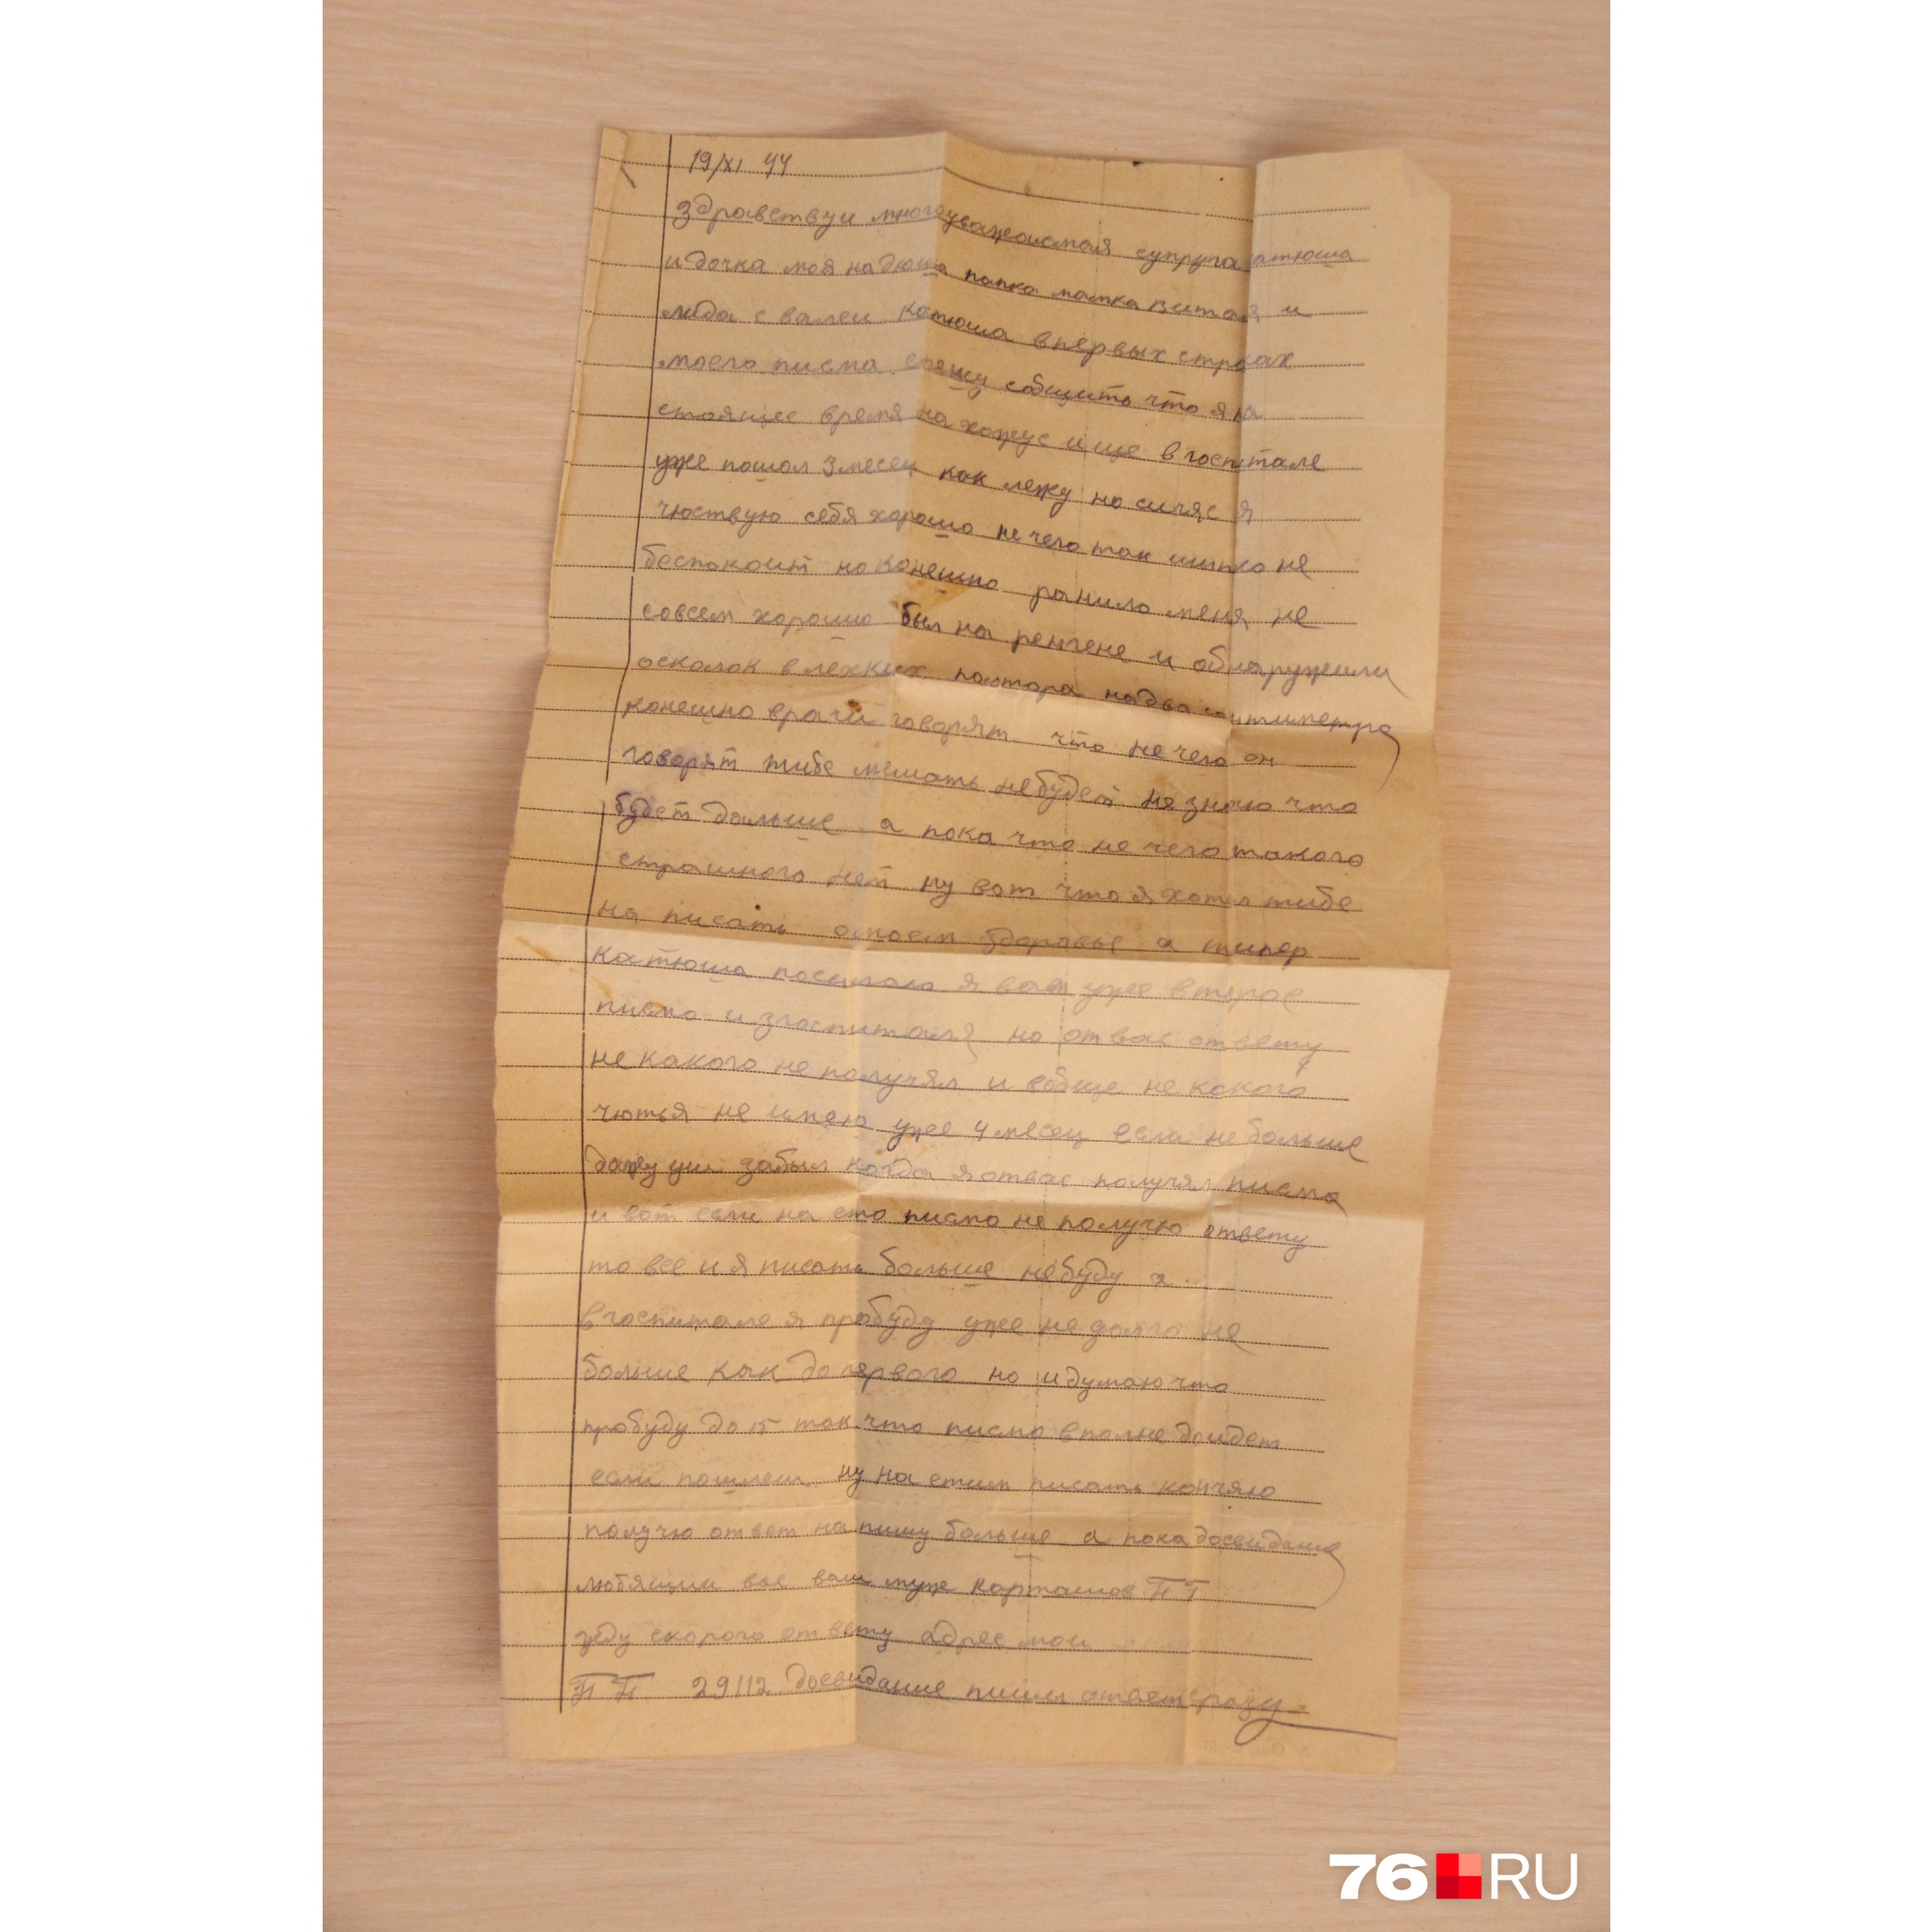 19/XI 44
Здравствуи многоуважаемая супруга катюша
и дочка моя надюша папка мамка витая и
люда с валеи катюша впервых строках
моего писма спешу собщить что я на
стоящее время на хожус ище в госпитале
уже пошол 3 месец как лежу но сичяс я
чюствую себя хорошо не чего так шипко не
беспокоит но конешно ранило меня не
совсем хорошо был на ренгене и обнаружили
осколок в лехких полтора на два сантиметра
конешно врачи говорят что не чего он
говорят тибе мешать небудет не знаю что
будет дальше а пока что не чего такого
страшного нет ну вот что я хотел тибе
на писать омоем здоровье а типер
Катюша посылаю я вам уже второе
писмо изгоспиталя но отвас ответу
не какого не получял и вобще не какого
чютья не имею уже 4 месец если не больше
даже уш забыл когда я отвас получял писмо
и вот если на ето писмо не получю ответу
то все и я писать больше небуду а
вгоспитале я пробуду уже не долго не
больше как до первого но и думаю что
пробуду до 15 так что писмо вполне доидет
если пошлеш ну на етим писать кончяю
получю ответ на пишу больше а пока досвидание
любящии вас ваш муж карташов П Г
жду скорого ответу адрес мои
П П 29112 досвидание пиши ответ сразу
76 RU